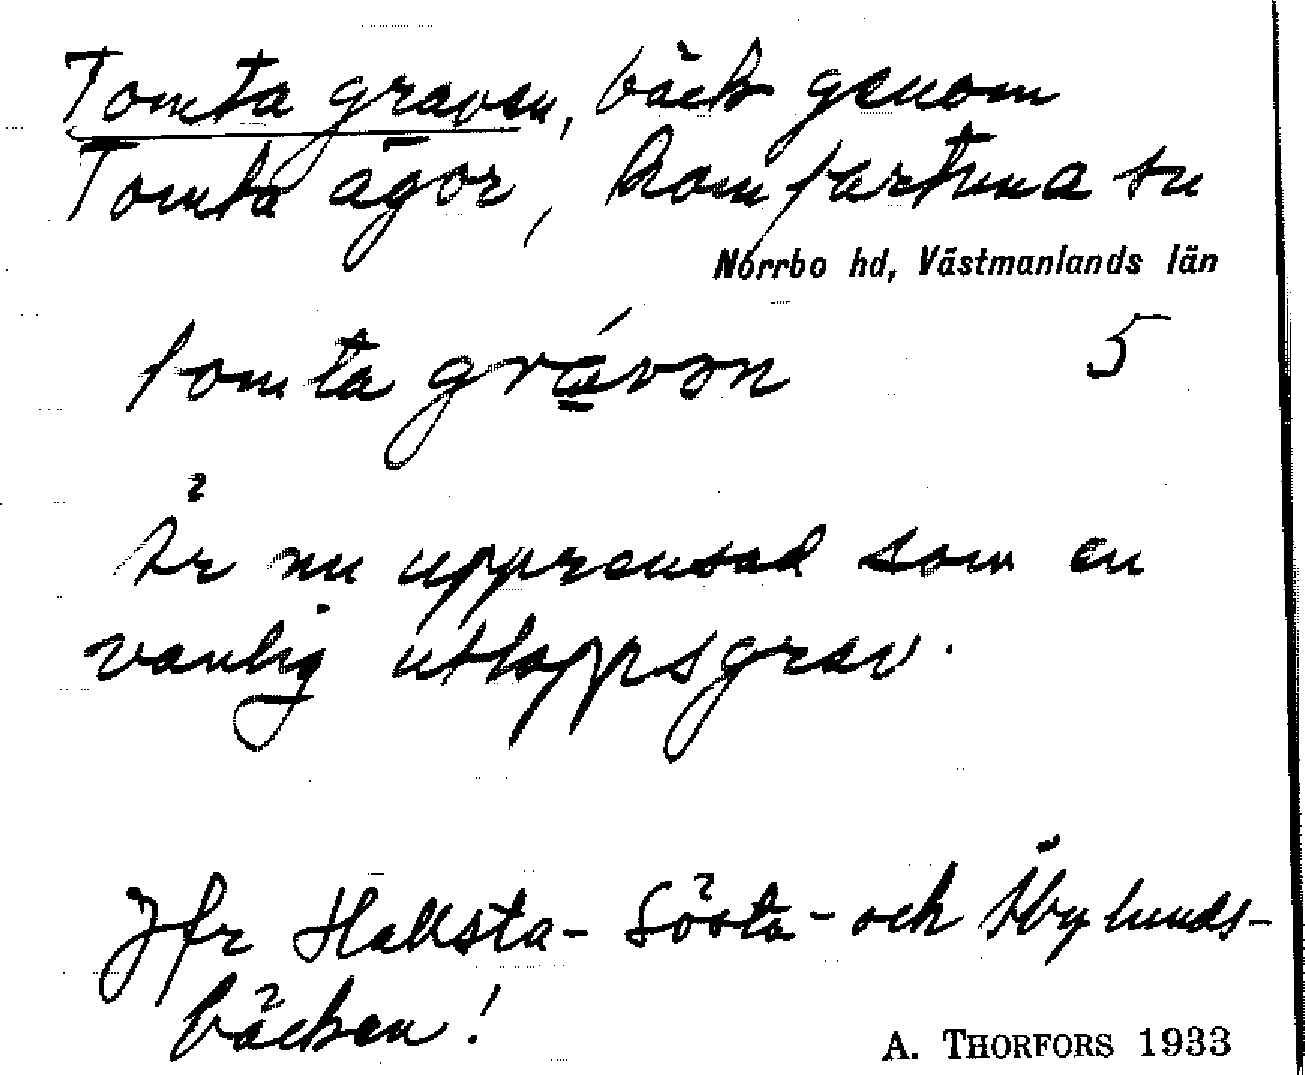 Tomta graven, bäck genom
Tomta ägor, Romfartuna sn
Norrbo hd, Västmanlands län
tomta grávǝn 5
Är nu upprensad som en
vanlig utloppsgrav.
Jfr Hallsta- Sösta- och Åbylunds-
bäcken!
A. THORFORS 1933